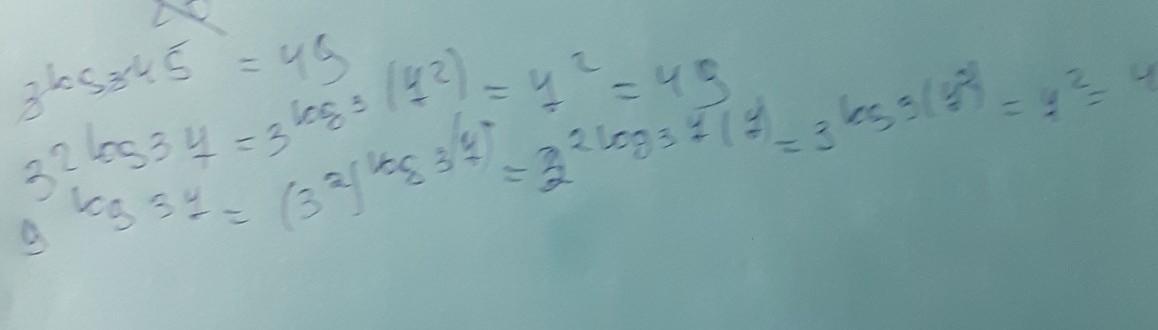 3^log₃45 = 49
3^2log₃7 = 3^log₃(7²) = 7² = 49
9^log₃7 = (3²)^log₃(7) = 3^2log₃7(7) = 3^log₃(7²) = 7² = 4